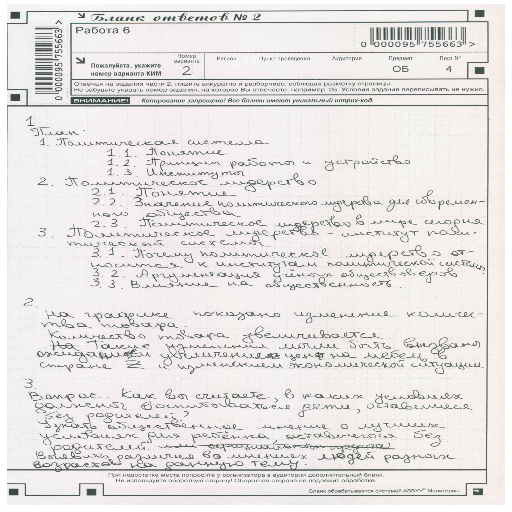 Бланк ответов № 2
Работа 6
0 000095 755663 >
0 000095 755663 >
Пожалуйста, укажите номер варианта КИМ
Номер варианта
2
Регион
Пункт проведения
Аудитория
Предмет
ОБ
Лист №
4
Отвечая на задания части 2, пишите аккуратно и разборчиво, соблюдая разметку страницы.
Не забудьте указать номер задания, на которое Вы отвечаете, например, 26. Условия задания переписывать не нужно.
ВНИМАНИЕ! Копирование запрещено! Все бланки имеют уникальный штрих-код.
1
План:
1. Политическая система
1.1. Понятие
1.2. Принцип работы и устройство
1.3. Институты
2. Политическое лидерство
2.1. Понятие
2.2. Значение политического лидерства для современ-
ного общества
2.3. Политическое лидерство в мире сегодня
3. Политическое лидерство - институт поли-
тической системы
3.1. Почему политическое лидерство от-
носится к институтам политической системы
3.2. Аргументация учёных обществоведов
3.3. Влияние на общественность.
2.
На графике показано изменение количес-
тва товара.
Количество товара увеличивается.
Такие изменения могли быть вызваны
ожиданием увеличения цен на мебель в
стране Z и изменением экономической ситуации.
3
Вопрос: Как вы считаете, в каких условиях
должны воспитываться дети, оставшиеся
без родителей?
Узнать общественное мнение о лучших
условиях для ребёнка, оставшегося без
родителей.
Выявить различия во мнениях людей разных
возрастов на данную тему.
При недостатке места попросите у организатора в аудитории дополнительный бланк.
Не используйте оборотную сторону! Оборотная сторона не подлежит обработке.
Бланк обрабатывается системой ABBYY